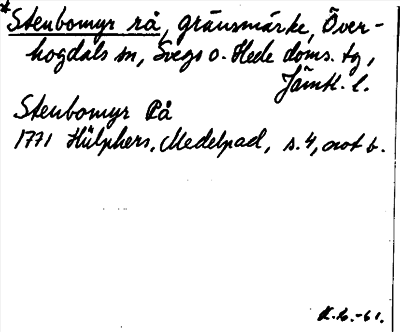 *Stenbomyr rå, gränsmärke, Över-
hogdals sn, Svegs o. Hede doms. tg,
Jämtl. l.
Stenbomyr Rå
1771 Hülphers, Medelpad, s. 4, not b.
K.L.-61.